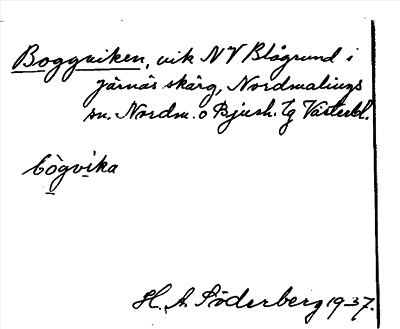 Boggviken, vik NV Blågrund i
Järnäs skärg, Nordmalings
sn. Nordm. o Bjurh. tg Västerbl.
bògvika
H. A. Söderberg 1937.